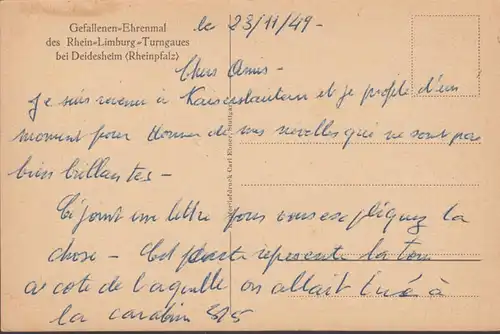 Gefallenen-Ehrenmal
des Rhein-Limburg-Turngaues
bei Deidesheim (Rheinpfalz)
le 23/11/49-
Chers Amis-
Je suis revenu à Kaiserslautern et je profite d'un
moment pour donner de mes novelles qui ne sont pas
bien brillantes-
Ci joint un lettre pour vous expliquez la
chose- Cet carte represente la tour
a cote de laquelle on allait tiré à
la carabine